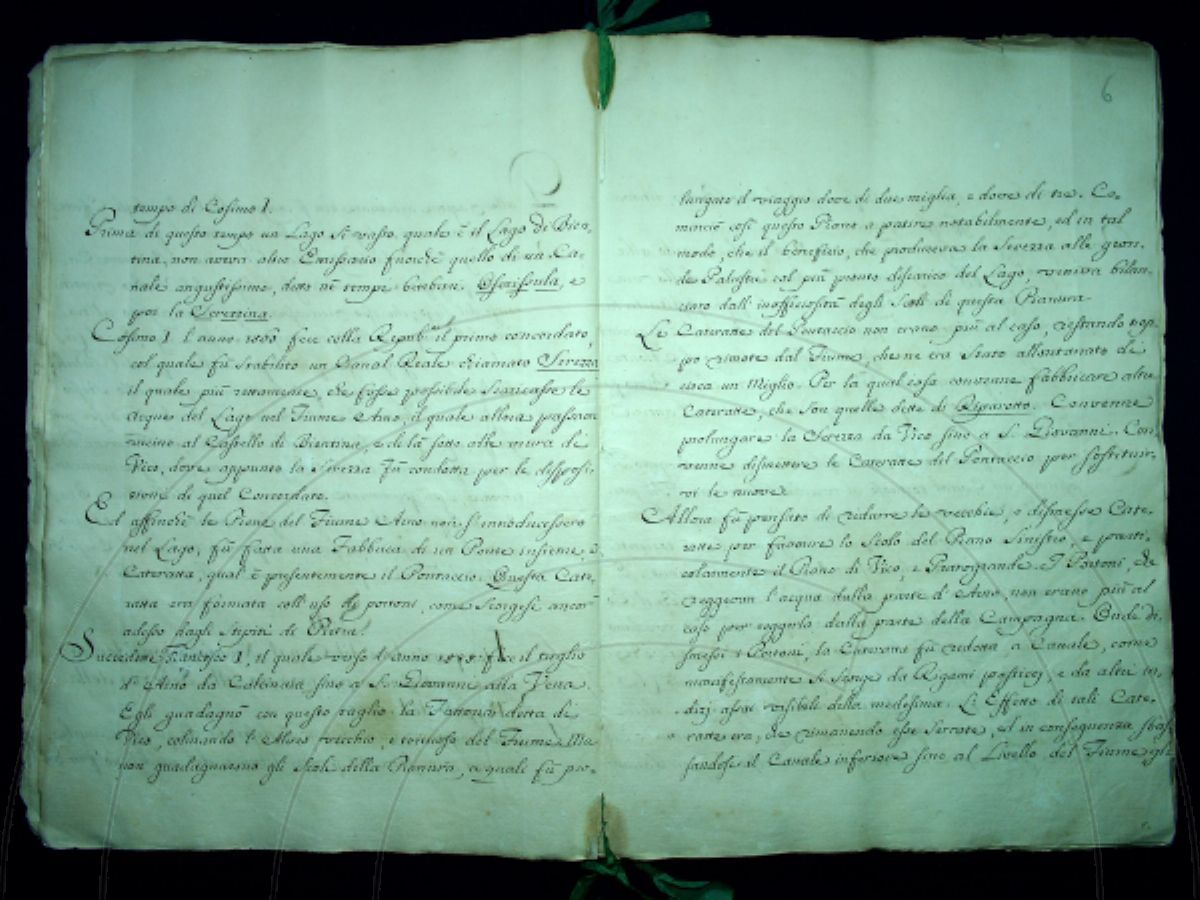 tempo di Cosimo I.
Prima di questo tempo un Lago sì vasto, quale è il Lago di Bien-
tina, non aveva altro Emissario fuorchè quello di un Ca-
nale angustissimo, detto nè tempi barbari e
poi la Serezzina.
Cosimo I l'anno fece colla Repub. il primo concordato,
col quale fù stabilito un Canal Reale chiamato Serezza
il quale più rettamente, che fosse possibile scaricasse le
Acque del Lago nel Fiume Arno, il quale allora passava
vicino al Castello di Bientina, e di là sotto alle mura di
Vico, dove appunto la Serezza fù condotta per le disposi-
zioni di quel Concordato.
Ed affinchè le Piene del Fiume Arno non s'introducessero
nel Lago, fù fatta una Fabbrica di un Ponte insieme, e
Cateratta, qual è presentemente il Pontaccio. Questa Cate-
ratta era formata coll'uso di portoni, come scorgesi ancor
adesso dagli Stipiti di Pietra.
Succedette Francesco I, il quale verso l'anno fece il taglio
d'Arno da Calcinaia sino a S. Giovanni alla Vena.
Egli guadagnò con questo taglio la Fattoria detta di
Vico, colmando l'Alveo vecchio, e tortuoso del Fiume. Ma
non guadagnarono gli Scoli della Pianura, a quali fù pro-
6
lungato il viaggio dove di due miglia, e dove di tre. Co-
minciò così questo Piano a patire notabilmente, ed in tal
modo, che il benefizio, che produceva la Serezza alle gron-
de Palustri col più pronto discarico del Lago, veniva bilan-
ciato dall'inofficiosità degli Scoli di questa Pianura.
Le Cateratte del Pontaccio non erano più al caso, restando trop-
po remote dal Fiume, che ne era stato allontanato di
circa un Miglio. Per la qual cosa convenne fabbricare altre
Cateratte, che son quelle dette di Riparotto. Convenne
prolungare la Serezza da Vico sino a S. Giovanni. Con-
venne dismettere le Cateratte del Pontaccio per sostituir-
vi le nuove.
Allora fù pensato di ridurre le vecchie, e dismesse Cate-
ratte per favorire lo Scolo del Piano Sinistro, e parti-
colarmente il Piano di Vico, e Pratogrande. I Portoni, che
reggevan l'acqua dalla parte d'Arno, non erano più al
caso per reggerla dalla parte della Campagna. Onde di-
smessi i Portoni, la Cateratta fù ridotta a Canale, come
manifestamente si scorge da Rigami posticci, e da altri in-
dizj assai visibili della medesima. L'Effetto di tali Cate-
ratte era, che rimanendo esse serrate, ed in conseguenza sbas-
sandosi il Canale inferiore sino al Livello del Fiume gli